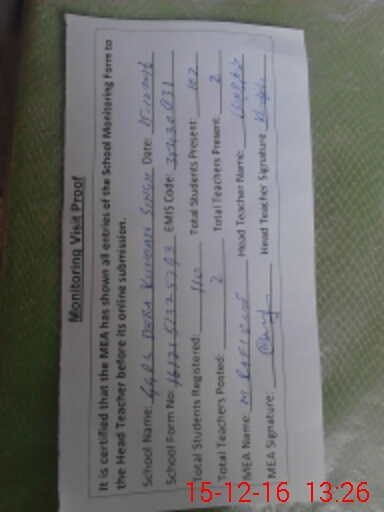 Monitoring Visit Proof
It is certified that the MEA has shown all entries of the School Monitoring Form to
the Head Teacher before its online submission.
School Name: GGPS DERA KUNDAN SINGH Date: 15-12-2016
School Form No: EMIS Code:
Total Students Registered: 110 Total Students Present: 102
Total Teachers Posted: 2 Total Teachers Present: 2
MEA Name: M Head Teacher Name:
MEA Signature: Head Teacher Signature
15-12-16 13:26